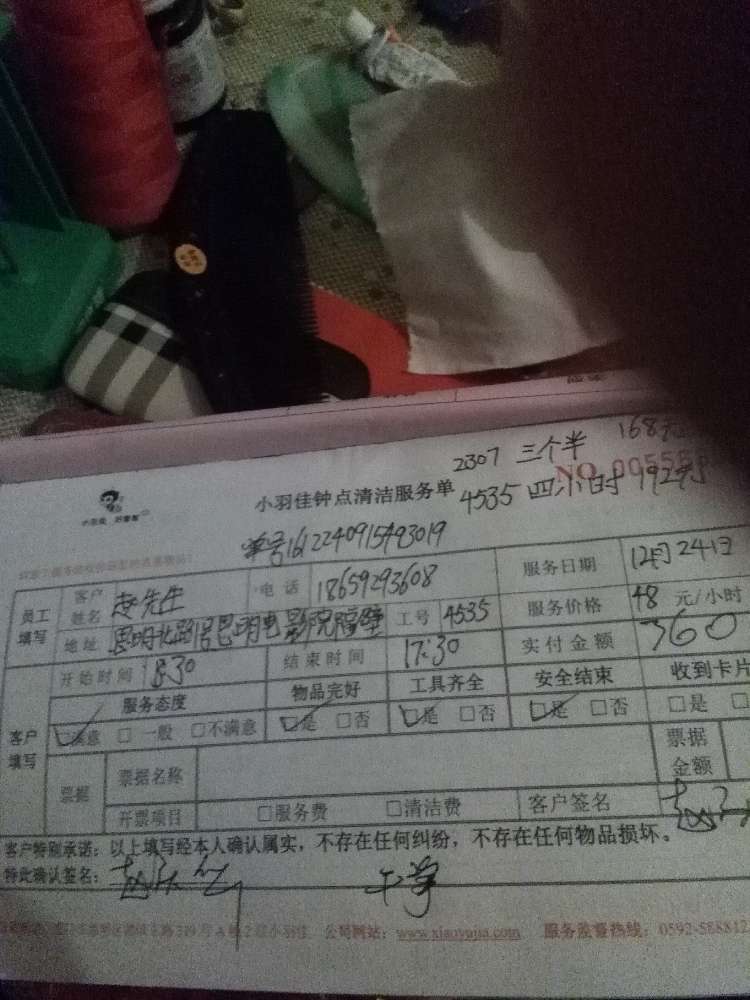 2307 三个半 168元
小羽佳钟点清洁服务单
NO.
4535 四小时 192元
单号1612240915493019
员工填写
客户姓名 赵先生 电话 18659293608 服务日期 12月24日
地址 思明北路 思明电影院隔壁 工号 4535 服务价格 48 元/小时
开始时间 结束时间 17:30 实付金额 360
客户填写
服务态度 物品完好 工具齐全 安全结束 收到卡片
☑满意 □ 一般 □不满意 ☑是 □否 ☑是 □否 ☑是 □否 □是 □
票据 票据名称 票据金额
开票项目 □服务费 □清洁费 客户签名
客户特别承诺：以上填写经本人确认属实，不存在任何纠纷，不存在任何物品损坏。
特此确认签名：
公司网站：www.xiaoyujia.com 服务监督热线：0592-588812